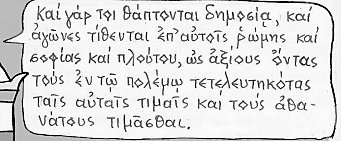 Καὶ γάρ τοι θάπτονται δημοσίᾳ, καὶ
ἀγῶνες τίθενται ἐπ' αὐτοῖς ῥώμης καὶ
σοφίας καὶ πλούτου, ὡς ἀξίους ὄντας
τοὺς ἐν τῷ πολέμῳ τετελευτηκότας
ταῖς αὐταῖς τιμαῖς καὶ τοὺς ἀθα-
νάτους τιμᾶσθαι.